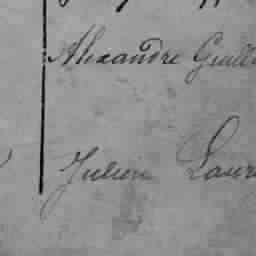 Alexandre Guill
Julien Laur